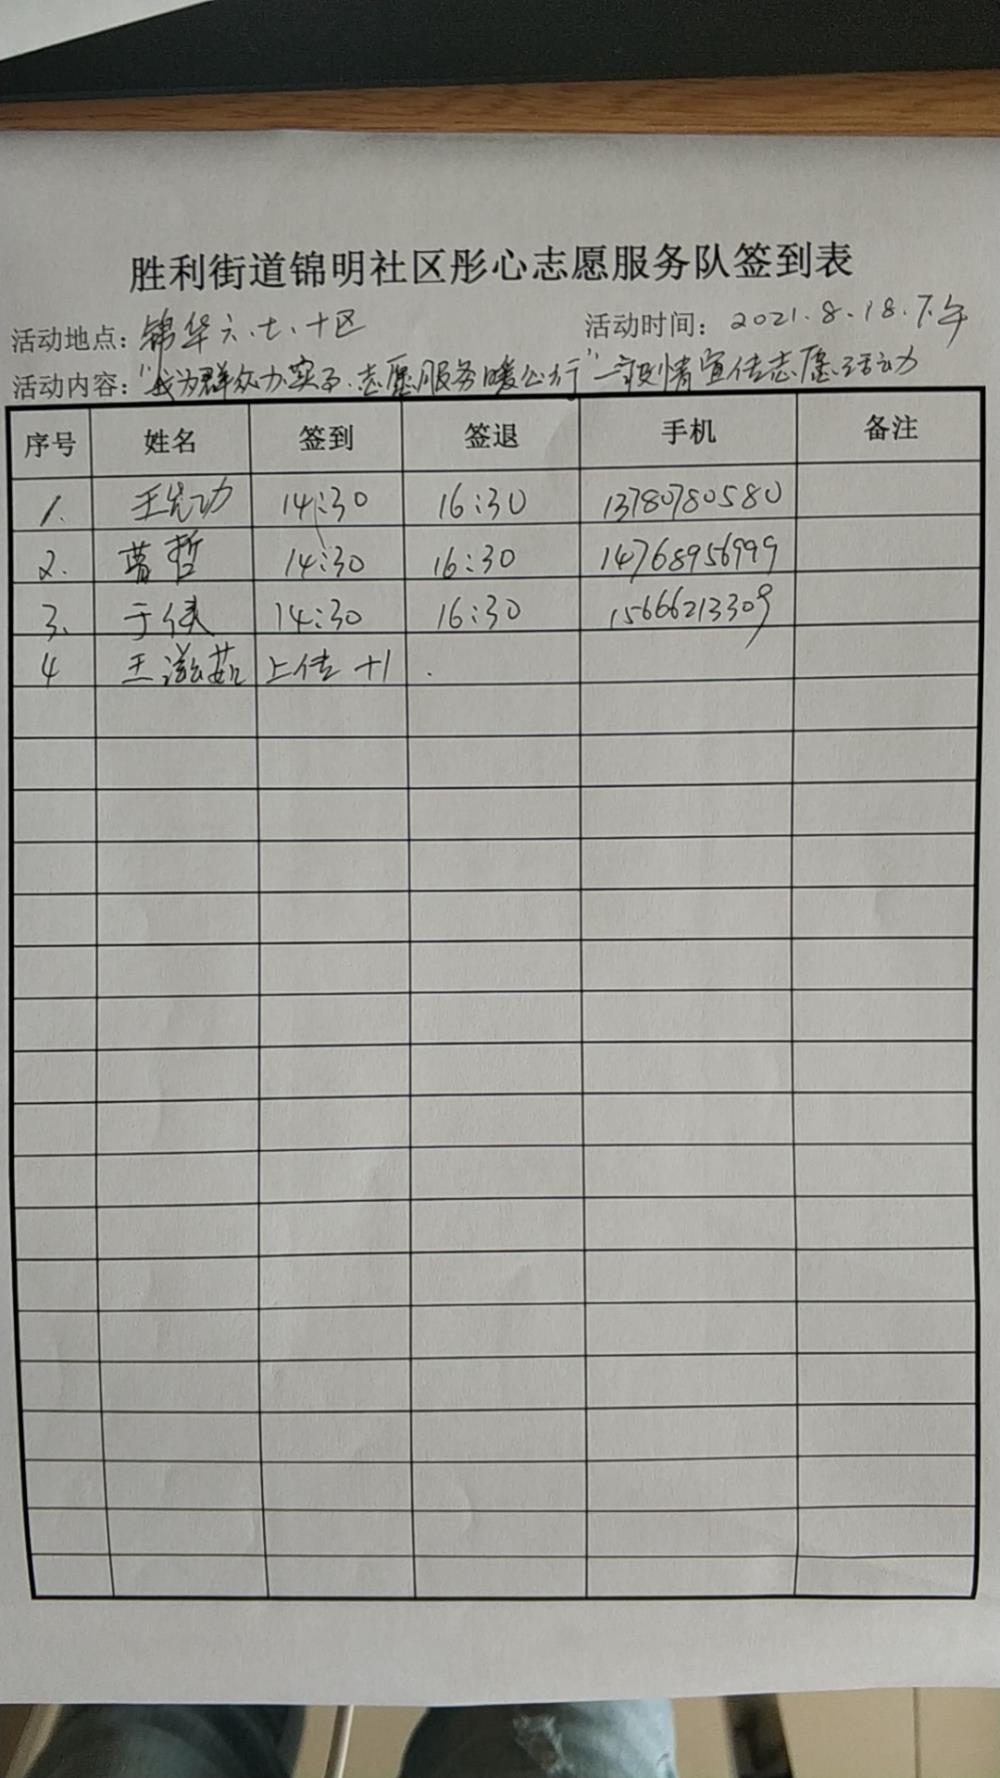 胜利街道锦明社区彤心志愿服务队签到表
活动地点：锦华六、七、十区 活动时间：2021.8.18.下午
活动内容："我为群众办实事.志愿服务暖心行"—疫情宣传志愿活动
序号 姓名 签到 签退 手机 备注
1. 王先功 14:30 16:30 13780780580
2. 曹哲 14:30 16:30 14768956999
3. 于侠 14:30 16:30 15666213309
4 王滋茹 上传+1